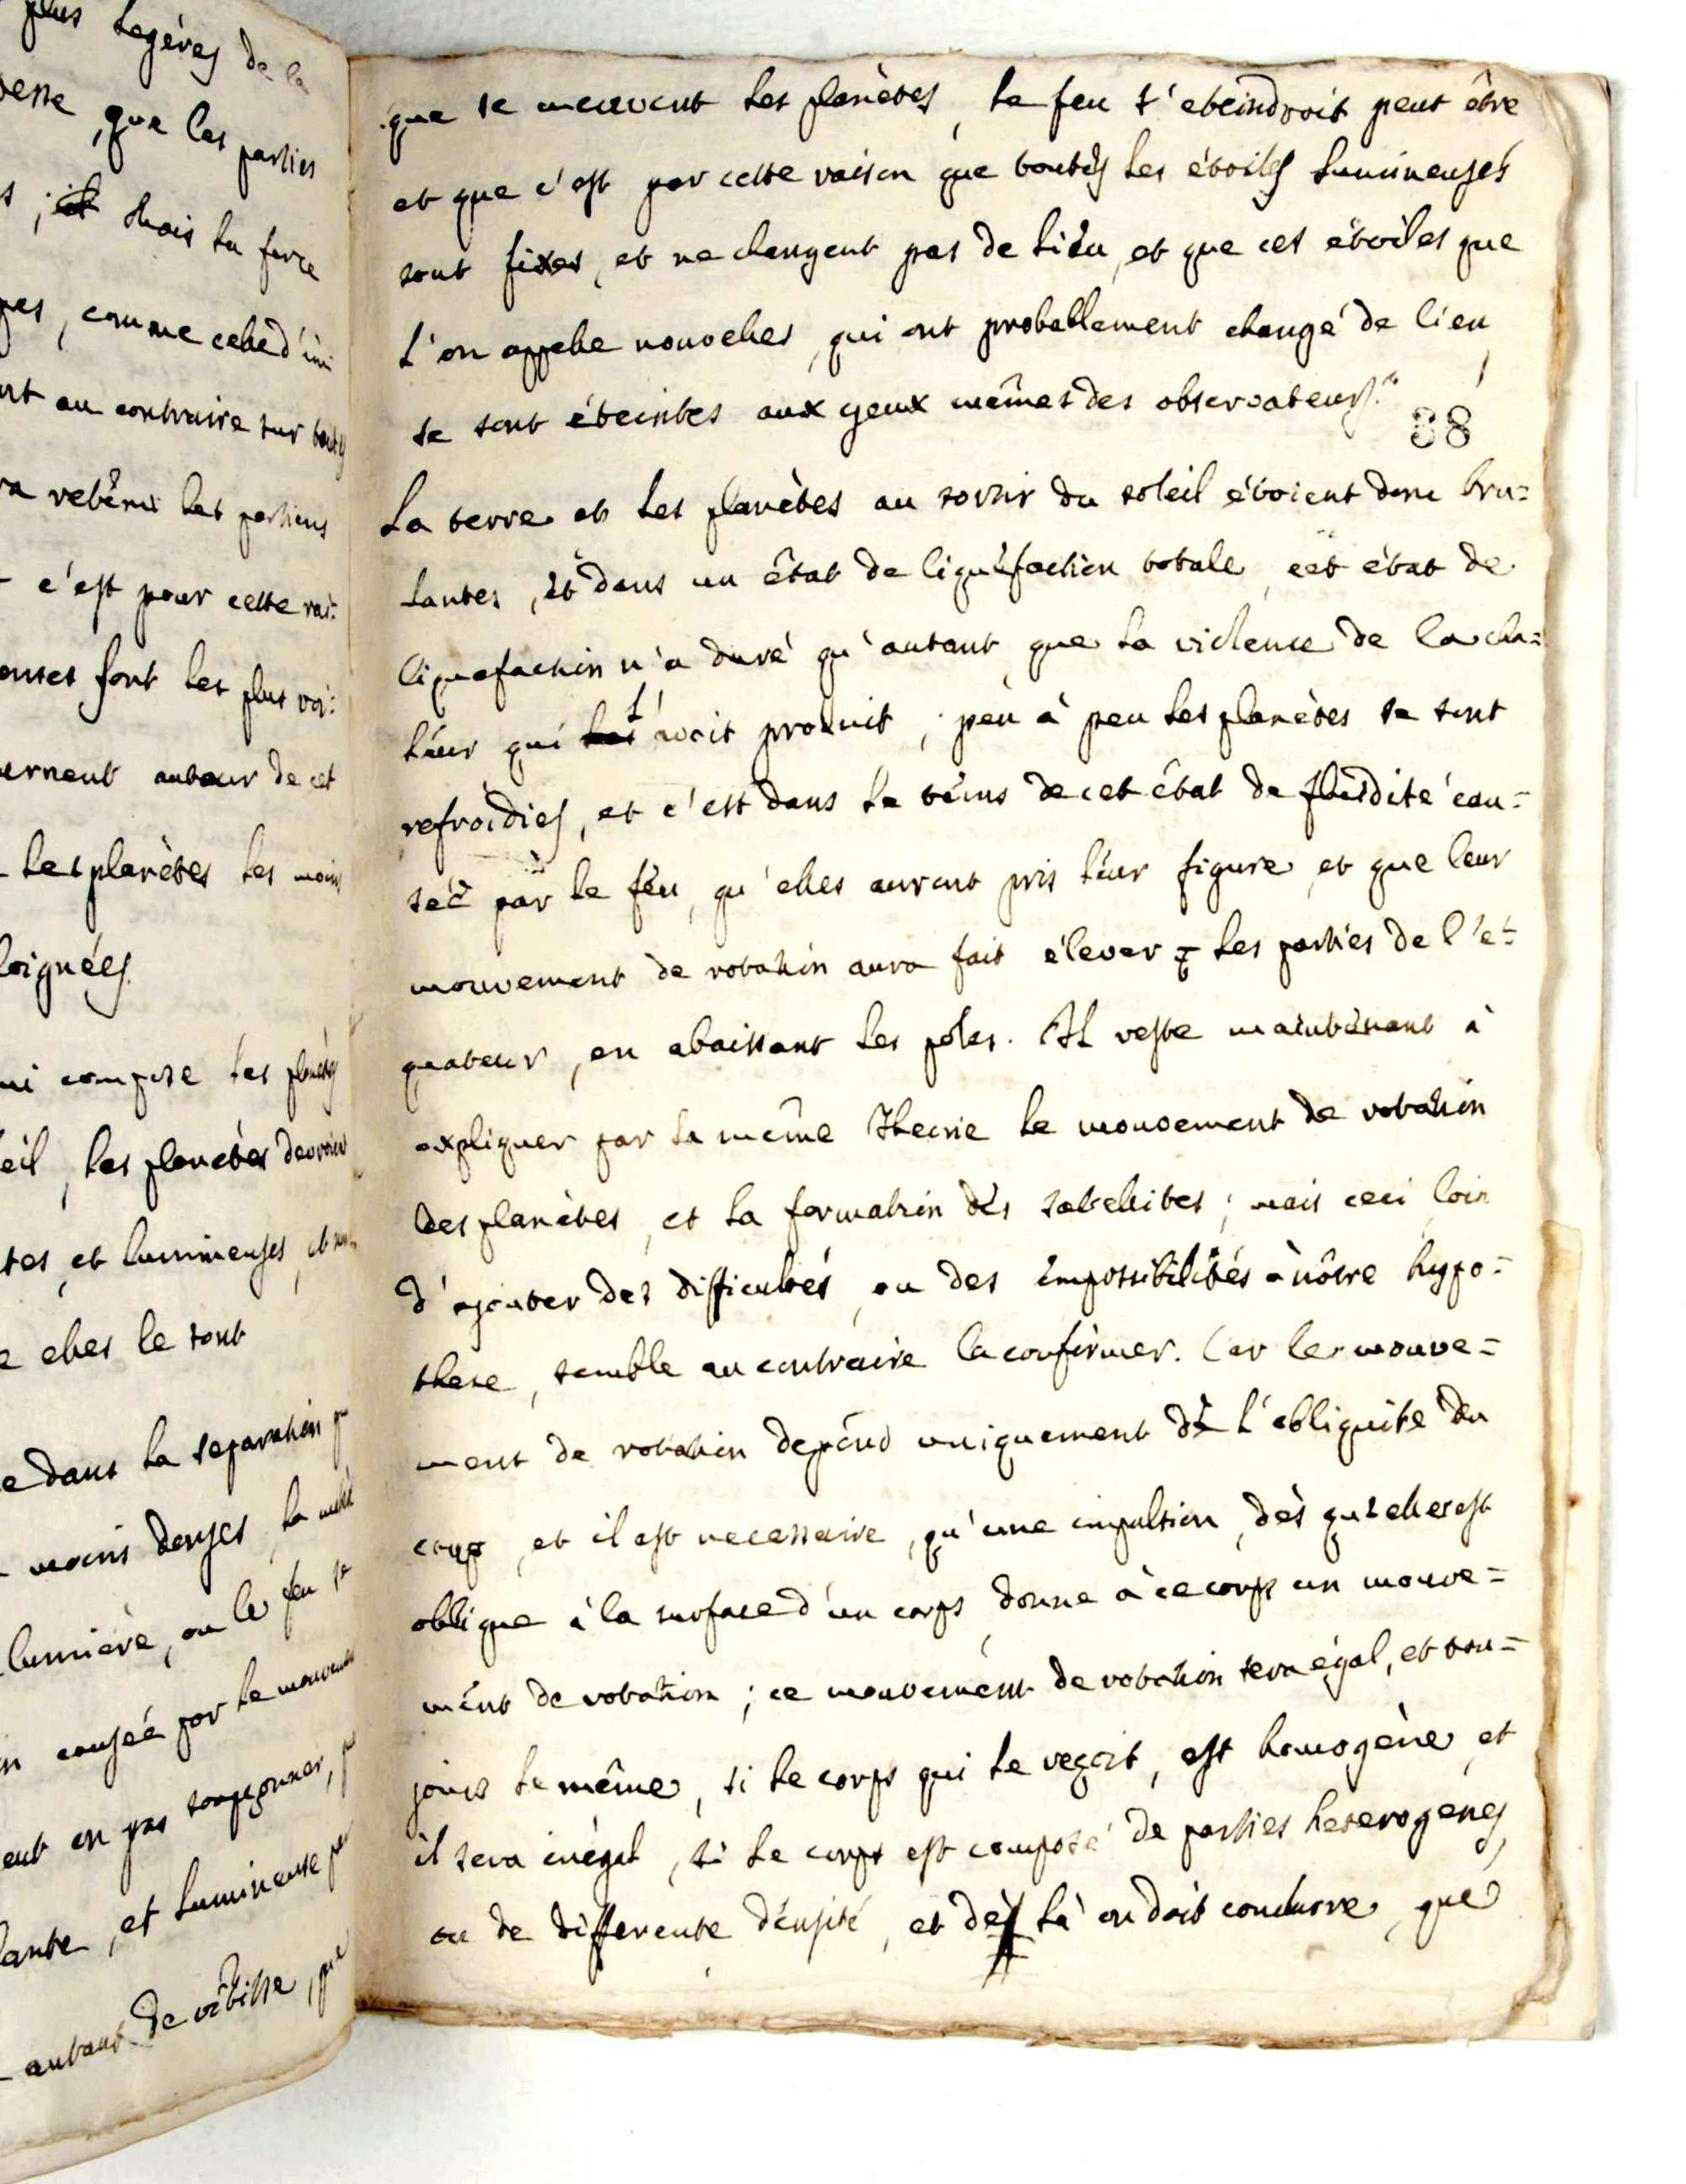 plus legéres de la
que les parties
mais la force
comme celle d'un
au contraire sur toutes
retenu les parties
c'est pour cette rai=
font les plus voi=
autour de cet
les planètes les moins
loignées.
compose les planètes
les planètes devroient
et lumineuses
elles le sont
dans la separation
moins denses, la
lumière, ou le feu se
causée par le mouvement
en pas soupçonner,
et lumineuse
autant de vitesse, que
que se meuvent les planètes, le feu s'eteindroit peut être
et que c'est par cette raison que toutes les étoiles lumineuses
sont fixes, et ne changent pas de lieu, et que ces étoiles que
l'on appelle nouvelles, qui ont probablement changé de lieu,
se sont éteintes aux yeux mêmes des observateurs."
38
La terre et les planètes au sortir du soleil étoient donc bru=
lantes, et dans un état de liquéfaction totale, cet état de
liquefaction n'a duré qu'autant que la violence de la cha=
leur qui l'avoit produit; peu à peu les planètes se sont
refroidies, et c'est dans le tems de cet état de fluidité cau=
sée par le feu, qu'elles auront pris leur figure, et que leur
mouvement de rotation aura fait élever les parties de l'e=
quateur, en abaissant les pôles. Il reste maintenant à
expliquer par la même Theorie le mouvement de rotation
des planètes, et la formation des satellites; mais ceci loin
d'ajouter des difficultés, ou des impossibilités à nôtre hypo=
these, semble au contraire la confirmer. Car le mouve=
ment de rotation depend uniquement de l'obliquite du
coup, et il est necessaire, qu'une impulsion, dès qu'elle est
oblique à la surface d'un corps, donne à ce corps un mouve=
ment de rotation; ce mouvement de rotation sera égal, et tou=
jours le même, si le corps qui le reçoit, est homogène, et
il sera inégal, si le corps est composé de parties heterogenes,
ou de differente densité, et de là on doit conclurre, que